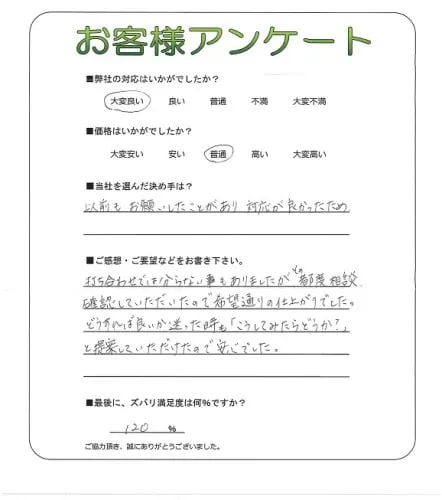 お客様アンケート
■弊社の対応はいかがでしたか？
大変良い 良い 普通 不満 大変不満
■価格はいかがでしたか？
大変安い 安い 普通 高い 大変高い
■当社を選んだ決め手は？
以前もお願いしたことがあり対応が良かったため
■ご感想・ご要望などをお書き下さい。
打ち合わせでは分らない事もありましたがその都度相談
確認していただいたので希望通りの仕上がりでした。
どうすれば良いか迷った時も「こうしてみたらどうか？」
と提案していただけたので安心でした。
■最後に、ズバリ満足度は何%ですか？
120 %
ご協力頂き、誠にありがとうございました。